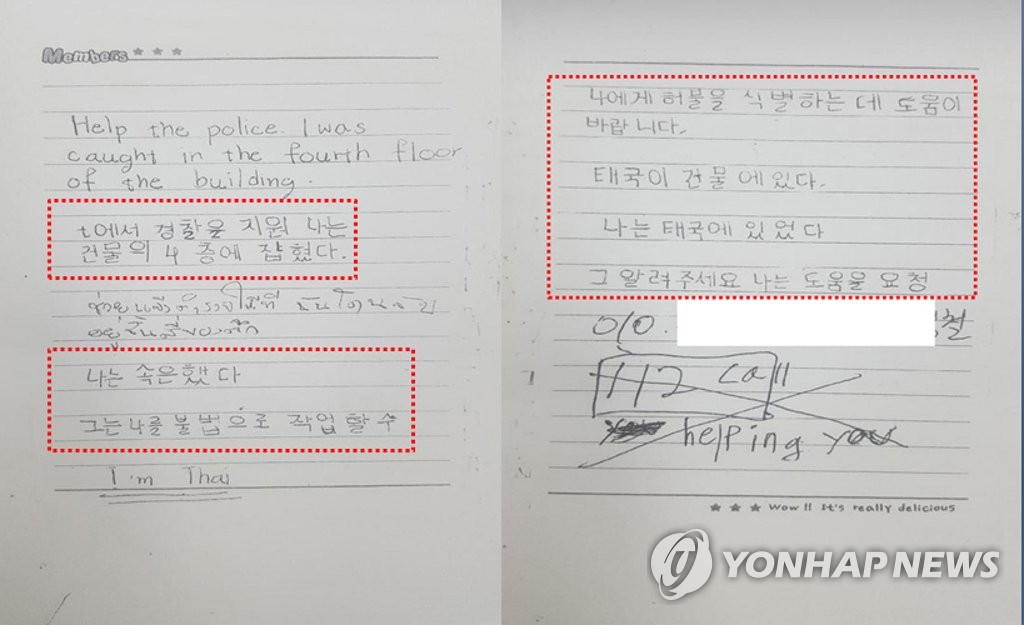 Members
Help the police. I was
caught in the fourth floor
of the building.
t에서 경찰을 지원 나는
건물의 4 층에 잡혔다.
나는 속은했다
그는 4를 불법으로 작업 할 수
I'm Thai
4에게 허물을 식별하는 데 도움이
바랍니다.
태국이 건물에 있다.
나는 태국에 있었다
그 알려주세요 나는 도움을 요청
112 call
helping you
Wow!! It's really delicious
YONHAP NEWS